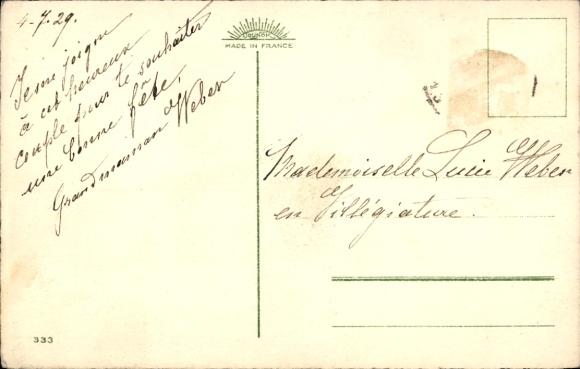 4-7.29.
Je me joigne
à cet heureux
couple pour te souhaiter
une bonne fête.
Grandmaman Weber
MADE IN FRANCE
Mademoiselle Lucie Weber
en Villégiature.
333